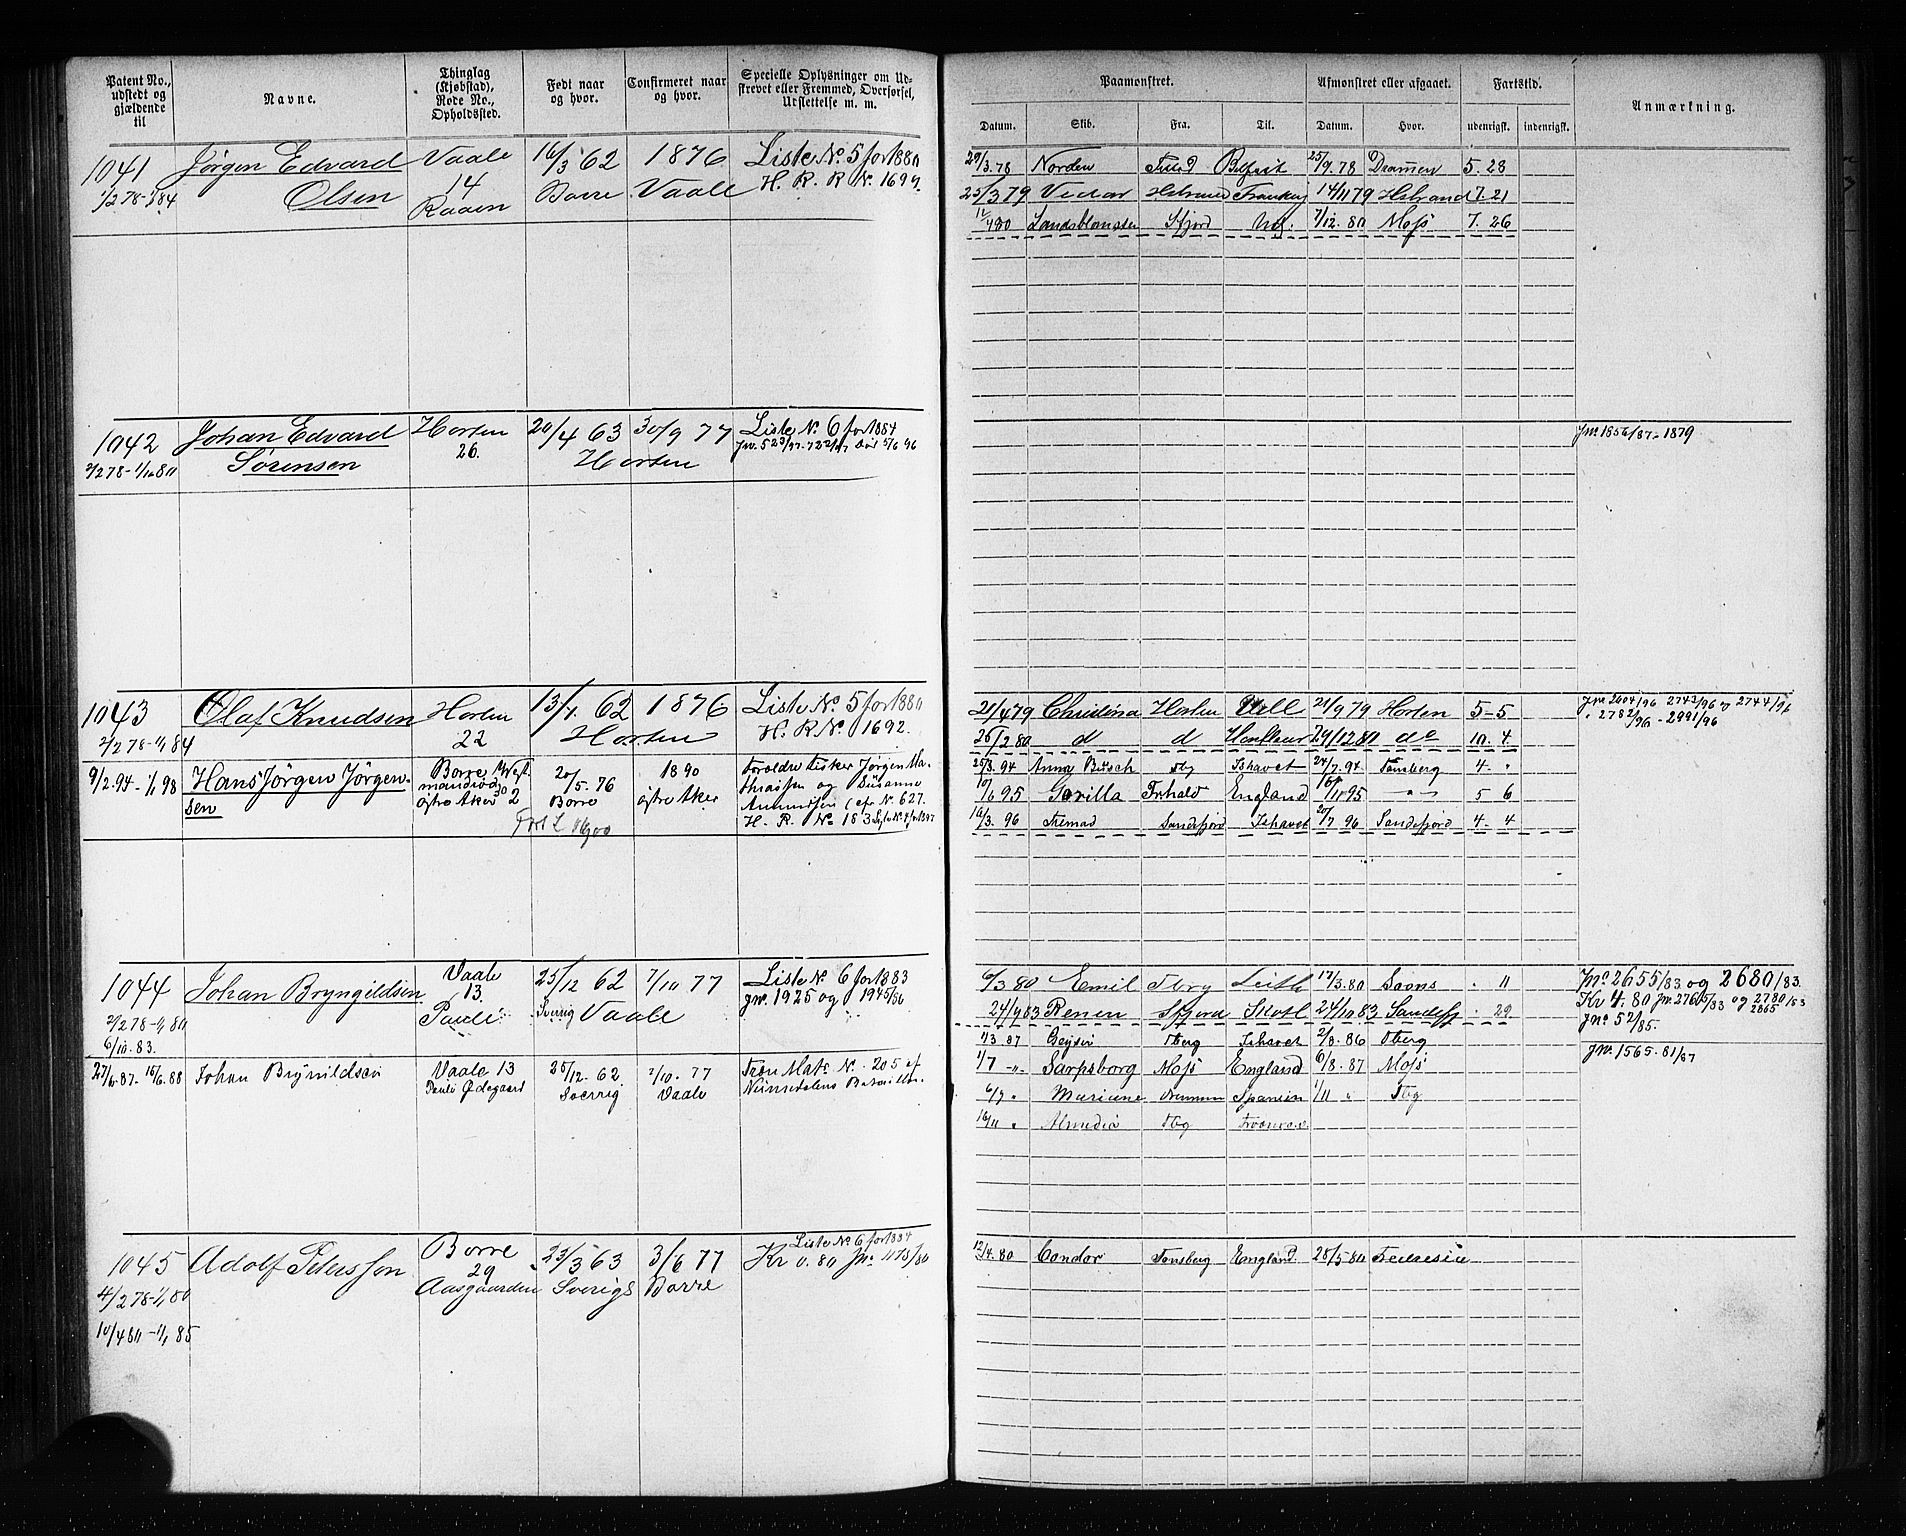 Patent No., udstedt og gjældende til
Navne.
Thinglag (Kjøbstad), Rode No., Opholdssted.
Født naar og hvor.
Confirmeret naar og hvor.
Specielle Oplysninger om Udskrevet eller Fremmed, Overførsel, Udslettelse m. m.
Paamønstret.
Afmønstret eller afgaaet.
Fartstid.
Anmærkning.
Datum. Skib. Fra. Til. Datum. Hvor. udenrigsk. indenrigsk.
1041 Jørgen Edvard Vaale 16/3 62 1876 Liste No. 5 for 1880
1/2 78-1/1 84 Olsen 14 Borre Vaale H. R. R No. 1697.
Raaen
29/3.78 Norden Belfast 25/9.78 Drammen 5. 28
25/3 79 Vidar 14/11 79 Hstrand 7. 21
11/4 80 Landsblomsten Sfjord 7/12. 80 Moss 7. 26
1042 Johan Edvard Horten 20/4 63 30/9 77 Liste No. 6 for 1884
2/2 78- Sørensen 26. Horten
Jno. 1856/87 - 1879
1043 Olaf Knudsen Horten 13/1. 62 1876 Liste No. 5 for 1880
2/2 78-1/1 84 22 Horten H. R No. 1692.
9/2.94-1/1 98 Hans Jørgen Jørgen- Borre 20/5. 76 1890 Forældre Fisker Jørgen Ma-
sen østre Aker 2 Borre østre Aker thiassen og Susanne
Amundsen (cfr No. 627.
H. R. No 183
21/4 79 Christina Horten Hull 21/9 79 Horten 5-5
26/2 80 d d 29/12 80 do 10. 4
25/3.94 Anna Tbg Ishavet 24/7.94 Tønsberg 4. "
10/6 95 Gorilla Frhald England 95 5 6
16/3. 96 Sandefjord Ishavet 20/7 96 Sandefjord 4. 4
Jno. 2604/96 2743/96 2744/96
2782/96 - 2991/96
1044 Johan Bryngildsen Vaale 25/12 62 7/10 77 Liste No. 6 for 1883
2/2 78-1/1 80 13. Sverrig Vaale Jno. 1925 og 1945/86
6/10. 83. Pauli
27/6.87- 15/6.88 Johan Brynildsen Vaale 13 25/12. 62 7/10. 77 Mat. No. 205 af
Pauli Ødegaard Sverrig Vaale Numedalens Bataillon
6/3 80 Emil Tbrg Leith 17/3.80 " 11
24/9 83 Sfjord Skotl 24/10 83 Sandefj " 29
1/3 87 Geysir Tberg Ishavet 2/8.86 Tberg
1/7 Sarpsborg Moss England 6/8.87 Moss
6/9 " Mariane Spanien 1/11 " Tbg
16/11 " Tbg
Jno. 2655/83 og 2680/83.
Kr 4.80 Jno. 2765/83 og 2780/83
Jno. 52/85.
Jno. 1565. 81/87
1045 Adolf Petersson Borre 23/3 63 3/6 77 Liste No. 6 for 1884
4/2 78-1/1 80 29 Sverige Borre Kr 0.80 Jno. 1175/80
10/4 80-1/1 85 Aasgaarden
12/4.80 Condor Tønsberg England. 28/5 80